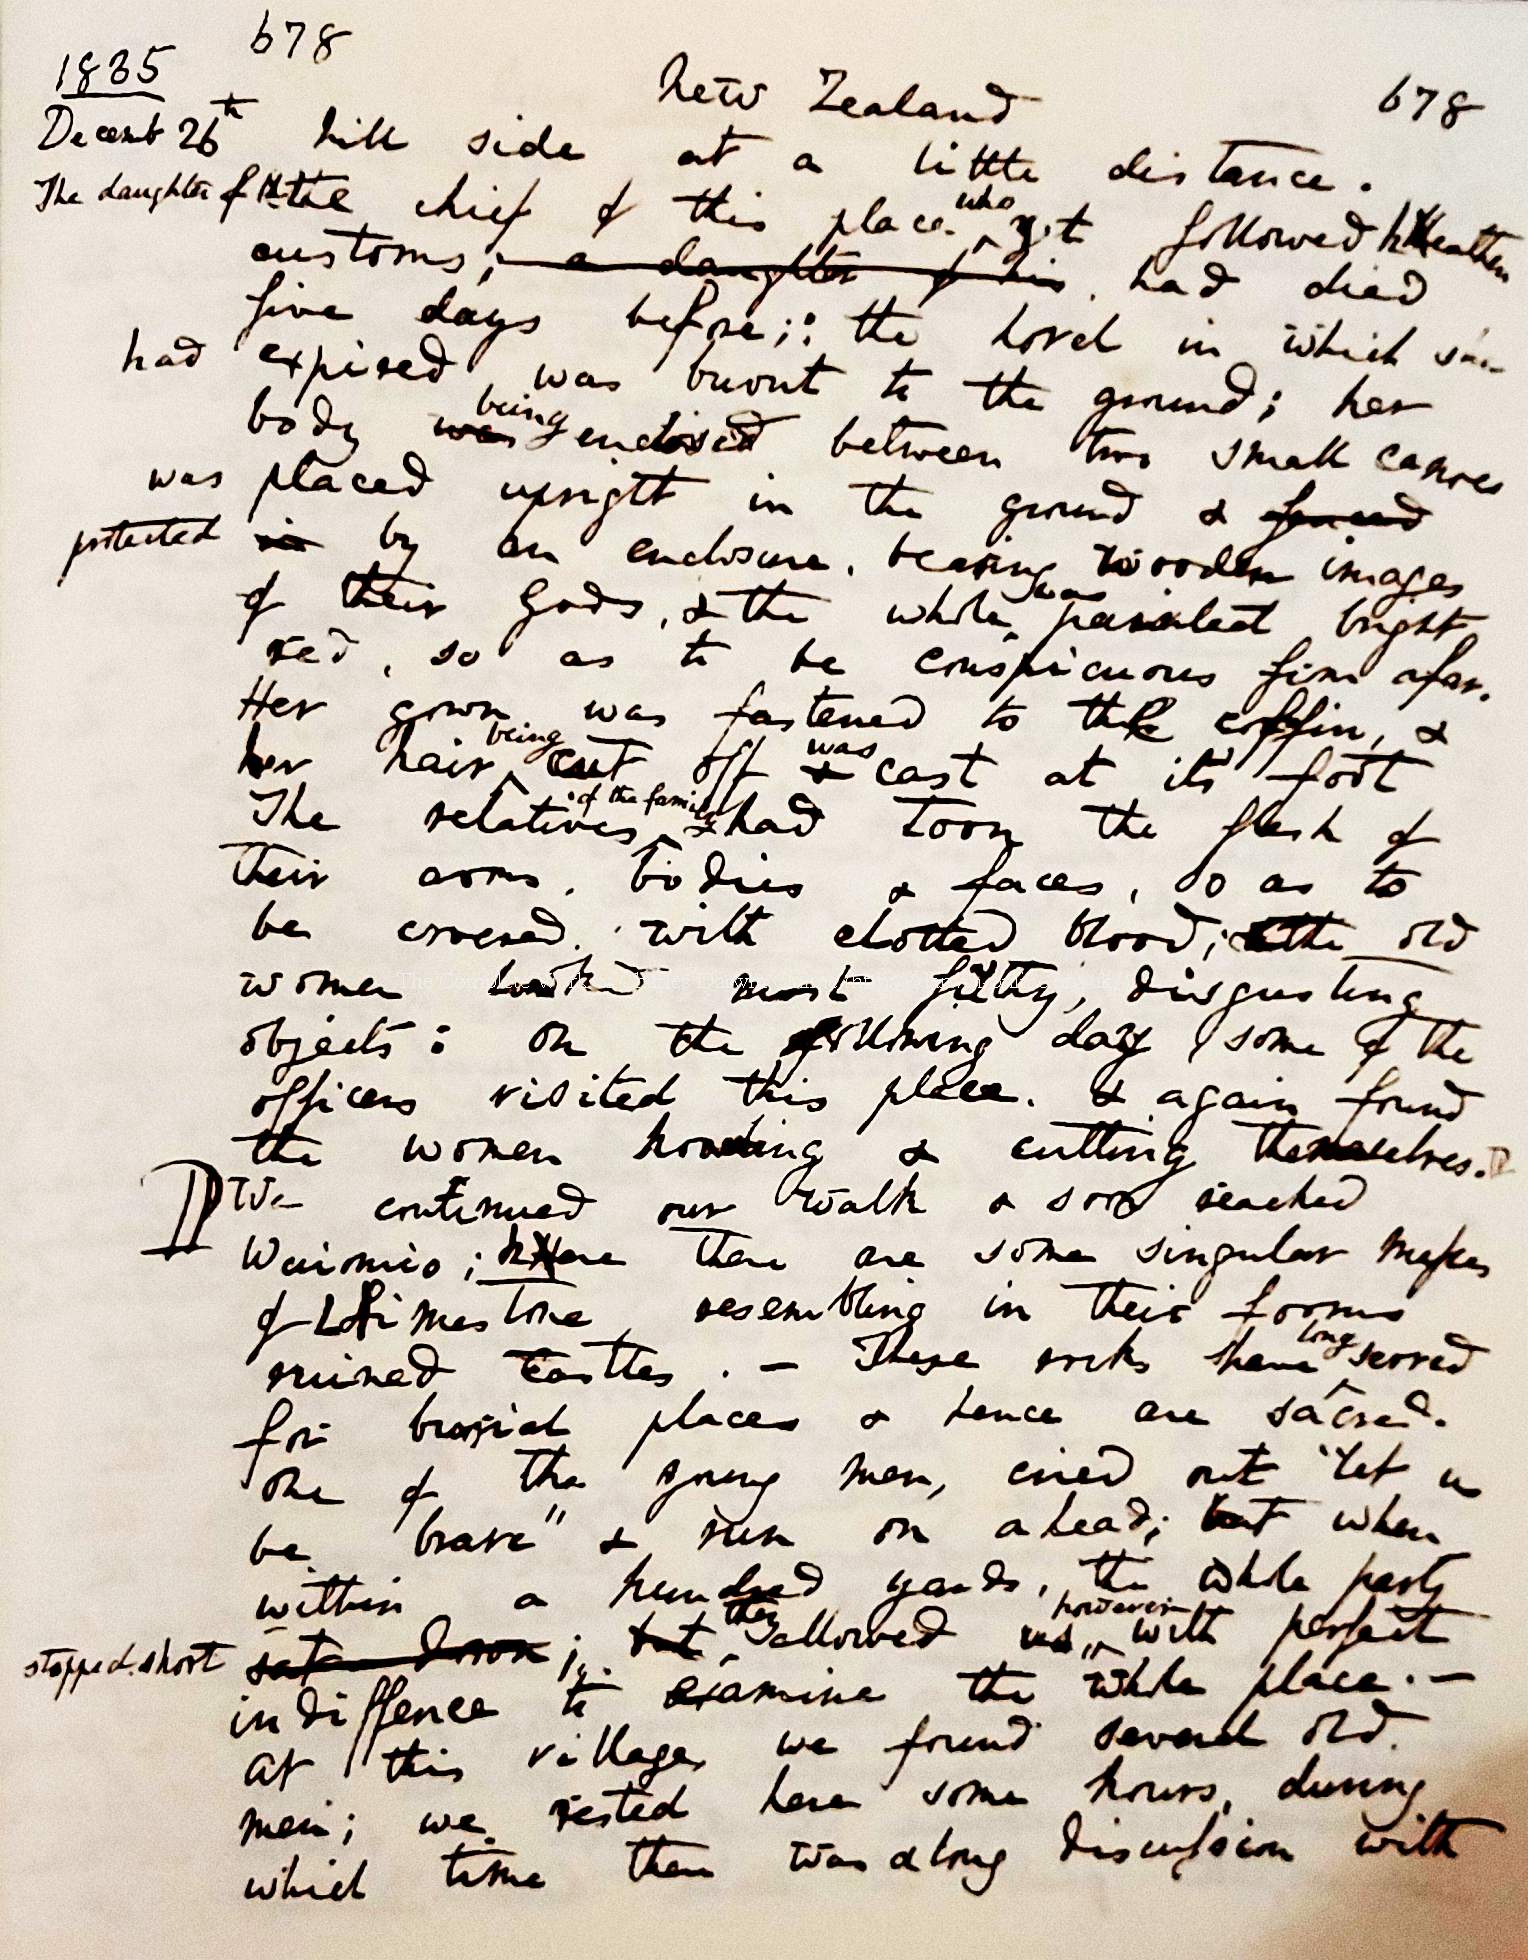 678
1835
New Zealand
678
Decemb 26th hill side at a little distance.
The daughter of the chief of this place. who yet followed Heathen
customs; a daughter of his, had died
five days before;: the hovel in which she
had expired, was burnt to the ground; her
body was being enclosed between two small canoes
was placed upright in the ground & fenced
protected in by an enclosure. bearing wooden images
of their Gods, & the whole was painted bright
red, so as to be conspicuous from afar.
Her gown was fastened to the coffin, &
her hair being cut off & was cast at its foot
The relatives of the family had torn the flesh of
their arms, bodies & faces, so as to
be covered. with clotted blood; & the old
women looked most filthy, disgusting
objects: on the following day some of the
officers visited this place. & again found
the women howling & cutting themselves.
We continued our walk & soon reached
Waiomio; here there are some singular masses
of Limestone resembling in their forms
ruined Castles. — These rocks have long served
for burial places & hence are sacred.
one of the young men, cried out "let us
be brave" & run on ahead; but when
within a hundred yards, the whole party
stopped short sat down; but they allowed us, however with perfect
indiffence to examine the whole place. —
At this village we found several old
men; we rested here some hours, during
which time there was a long discussion with